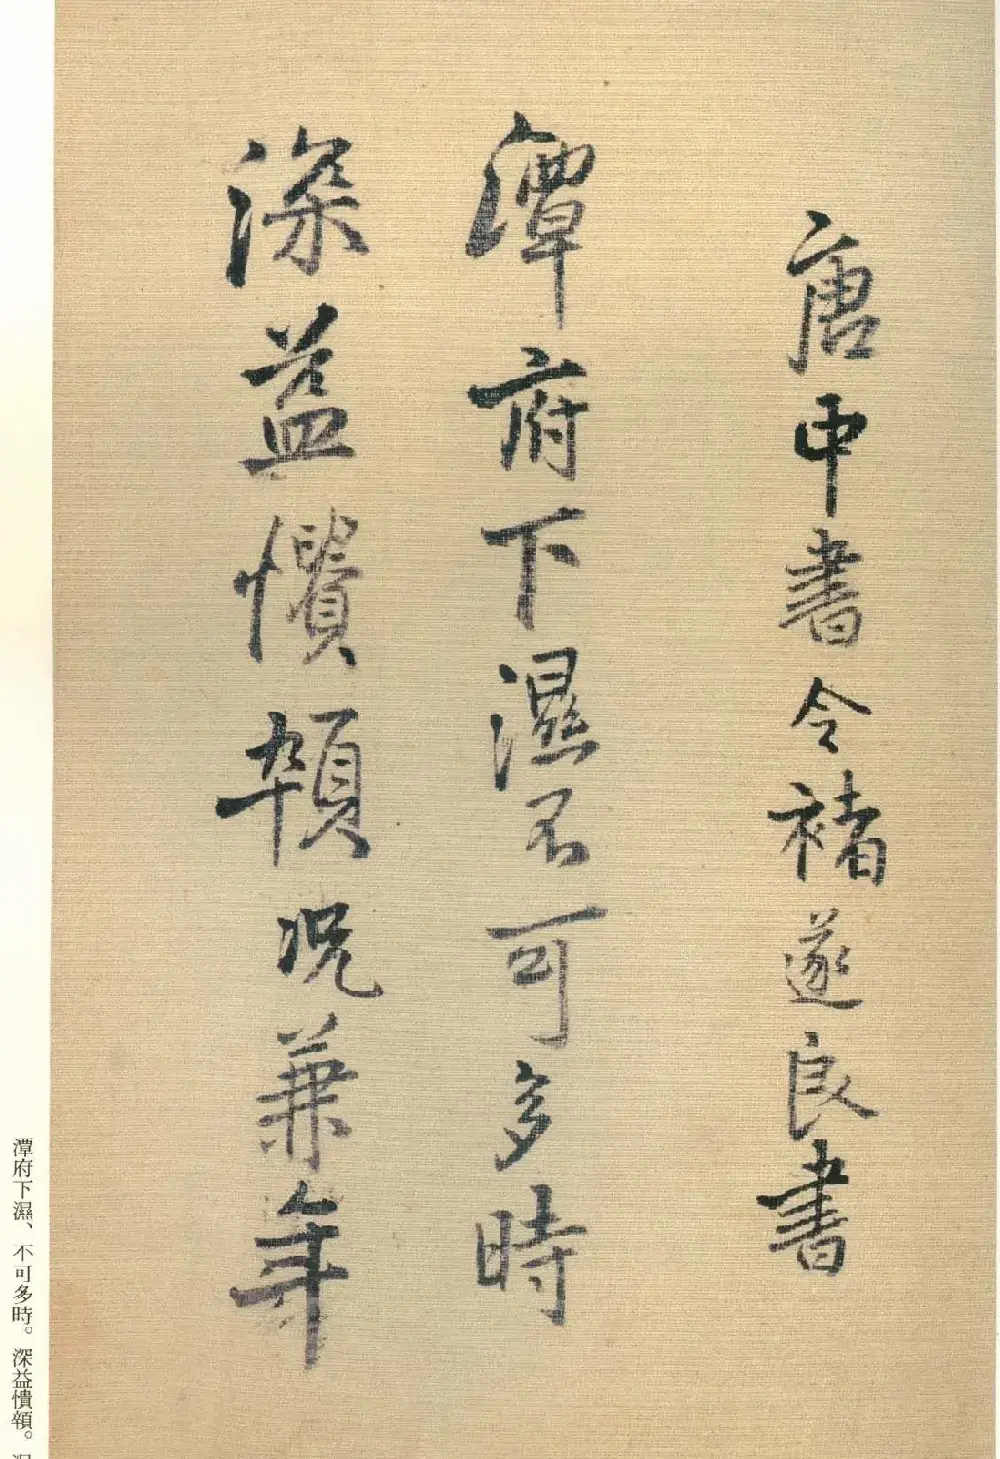 唐中書令褚遂良書
潭府下濕不可多時
深益憒頓況兼年
潭府下濕、不可多時。深益憒頓。況